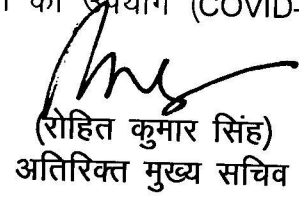 का उपयोग (COVID-
(रोहित कुमार सिंह)
अतिरिक्त मुख्य सचिव